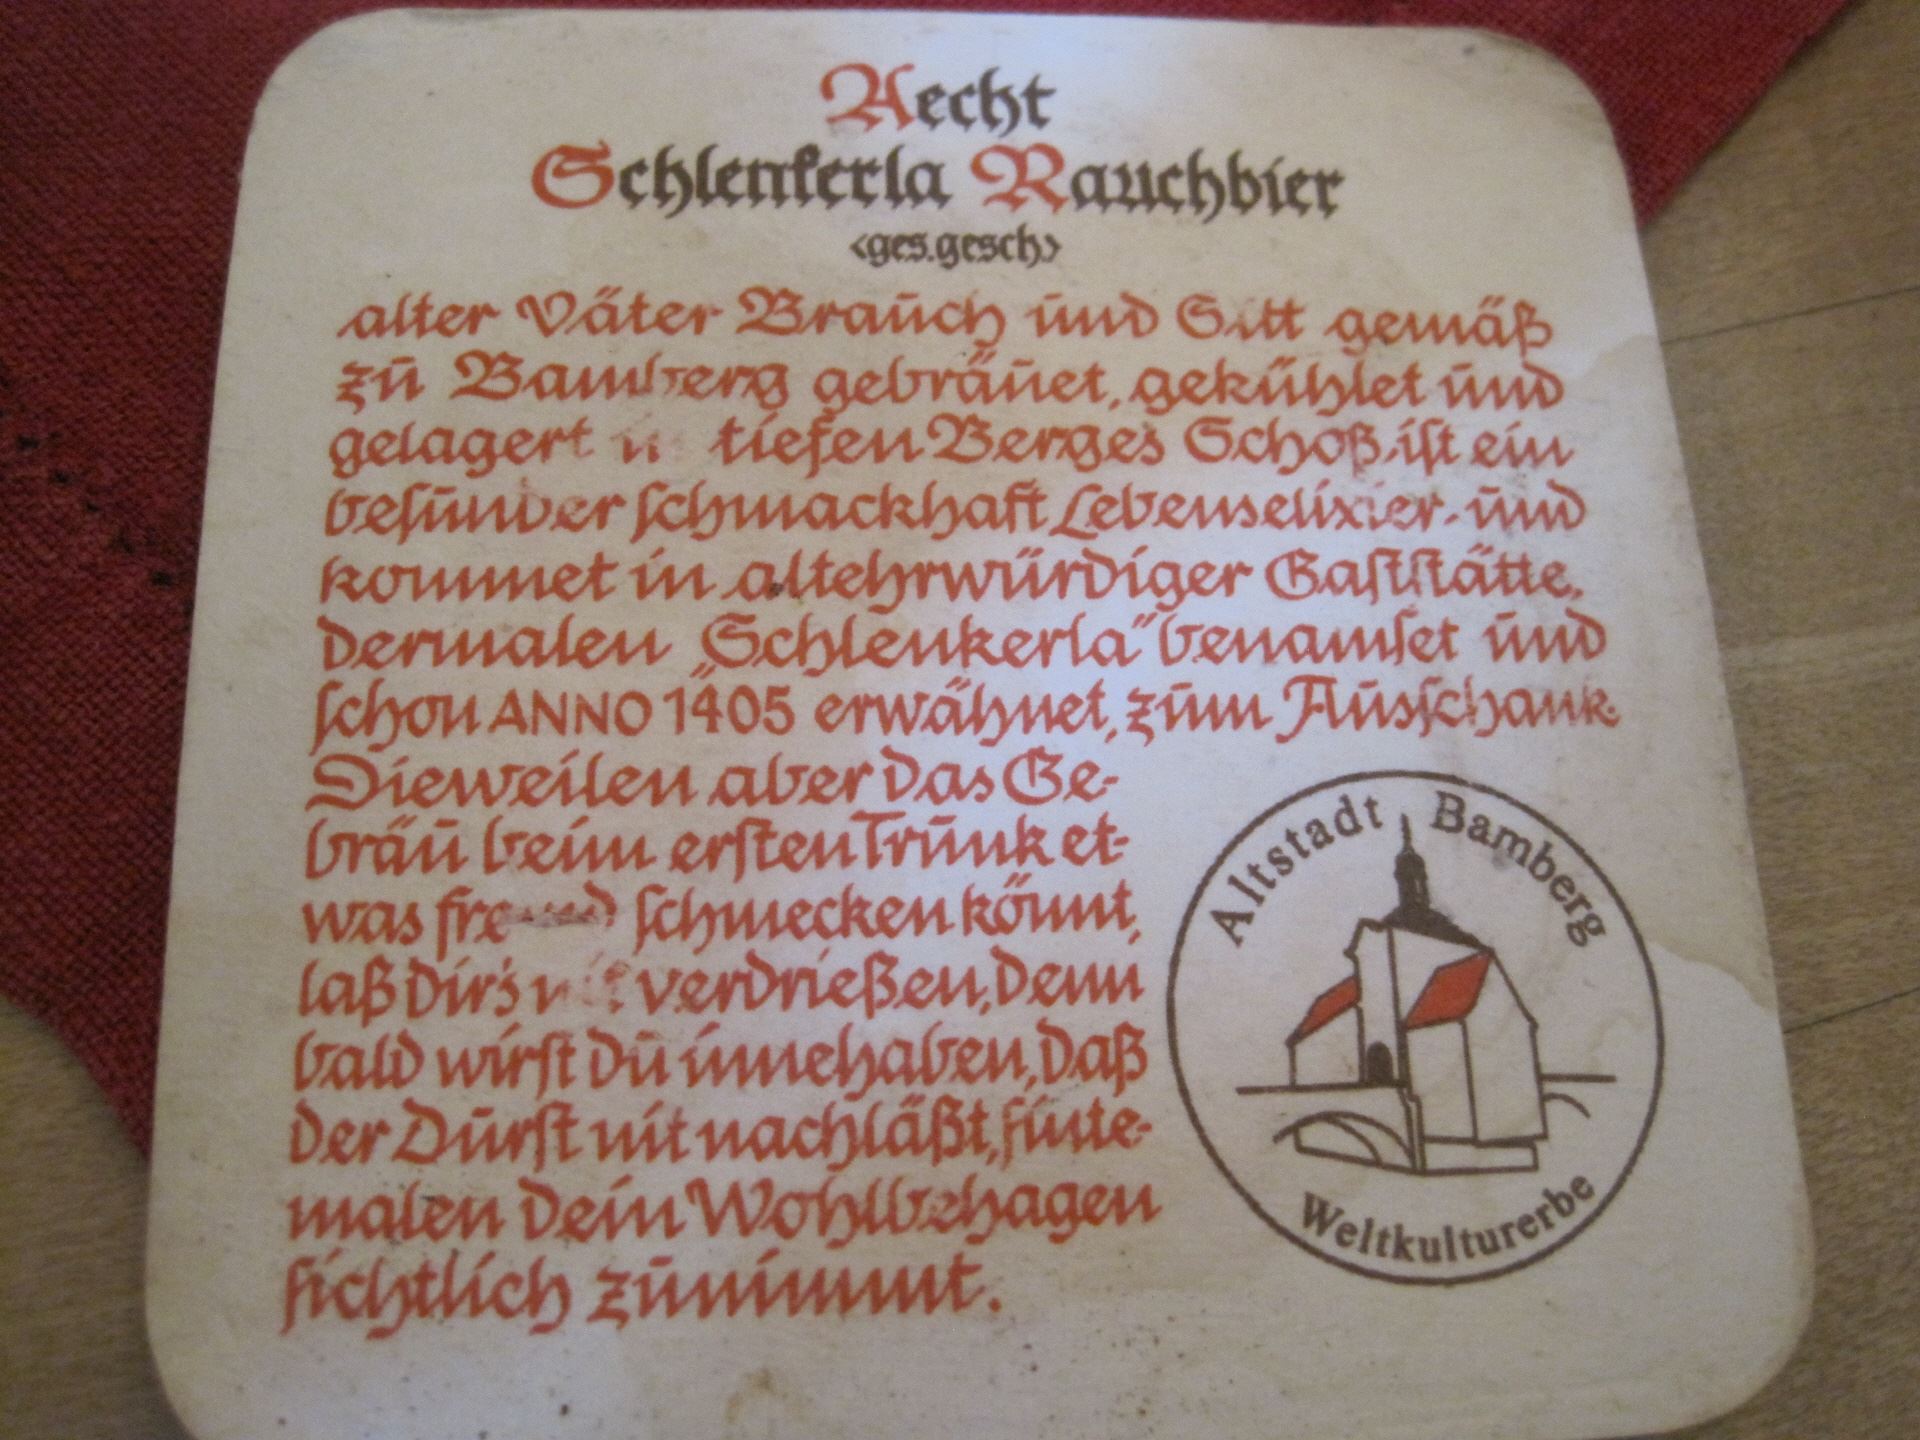 Aecht
Schlenkerla Rauchbier
<ges.gesch>
alter Väter Brauch und Sitt gemäß
zu Bamberg gebräuet, gekühlet und
gelagert in tiefen Berges Schoß, ist ein
besunder schmackhaft Lebenselixier und
kommet in altehrwürdiger Gaststätte,
dermalen „Schlenkerla" benamset und
schon ANNO 1405 erwähnet, zum Ausschank.
Dieweilen aber das Ge-
bräu beim ersten Trunk et-
was fremd schmecken könnt,
laß dir's nit verdrießen, denn
bald wirst du innehaben, daß
der Durst nit nachläßt, sinte-
malen dein Wohlbehagen
sichtlich zunimmt.
Altstadt Bamberg
Weltkulturerbe